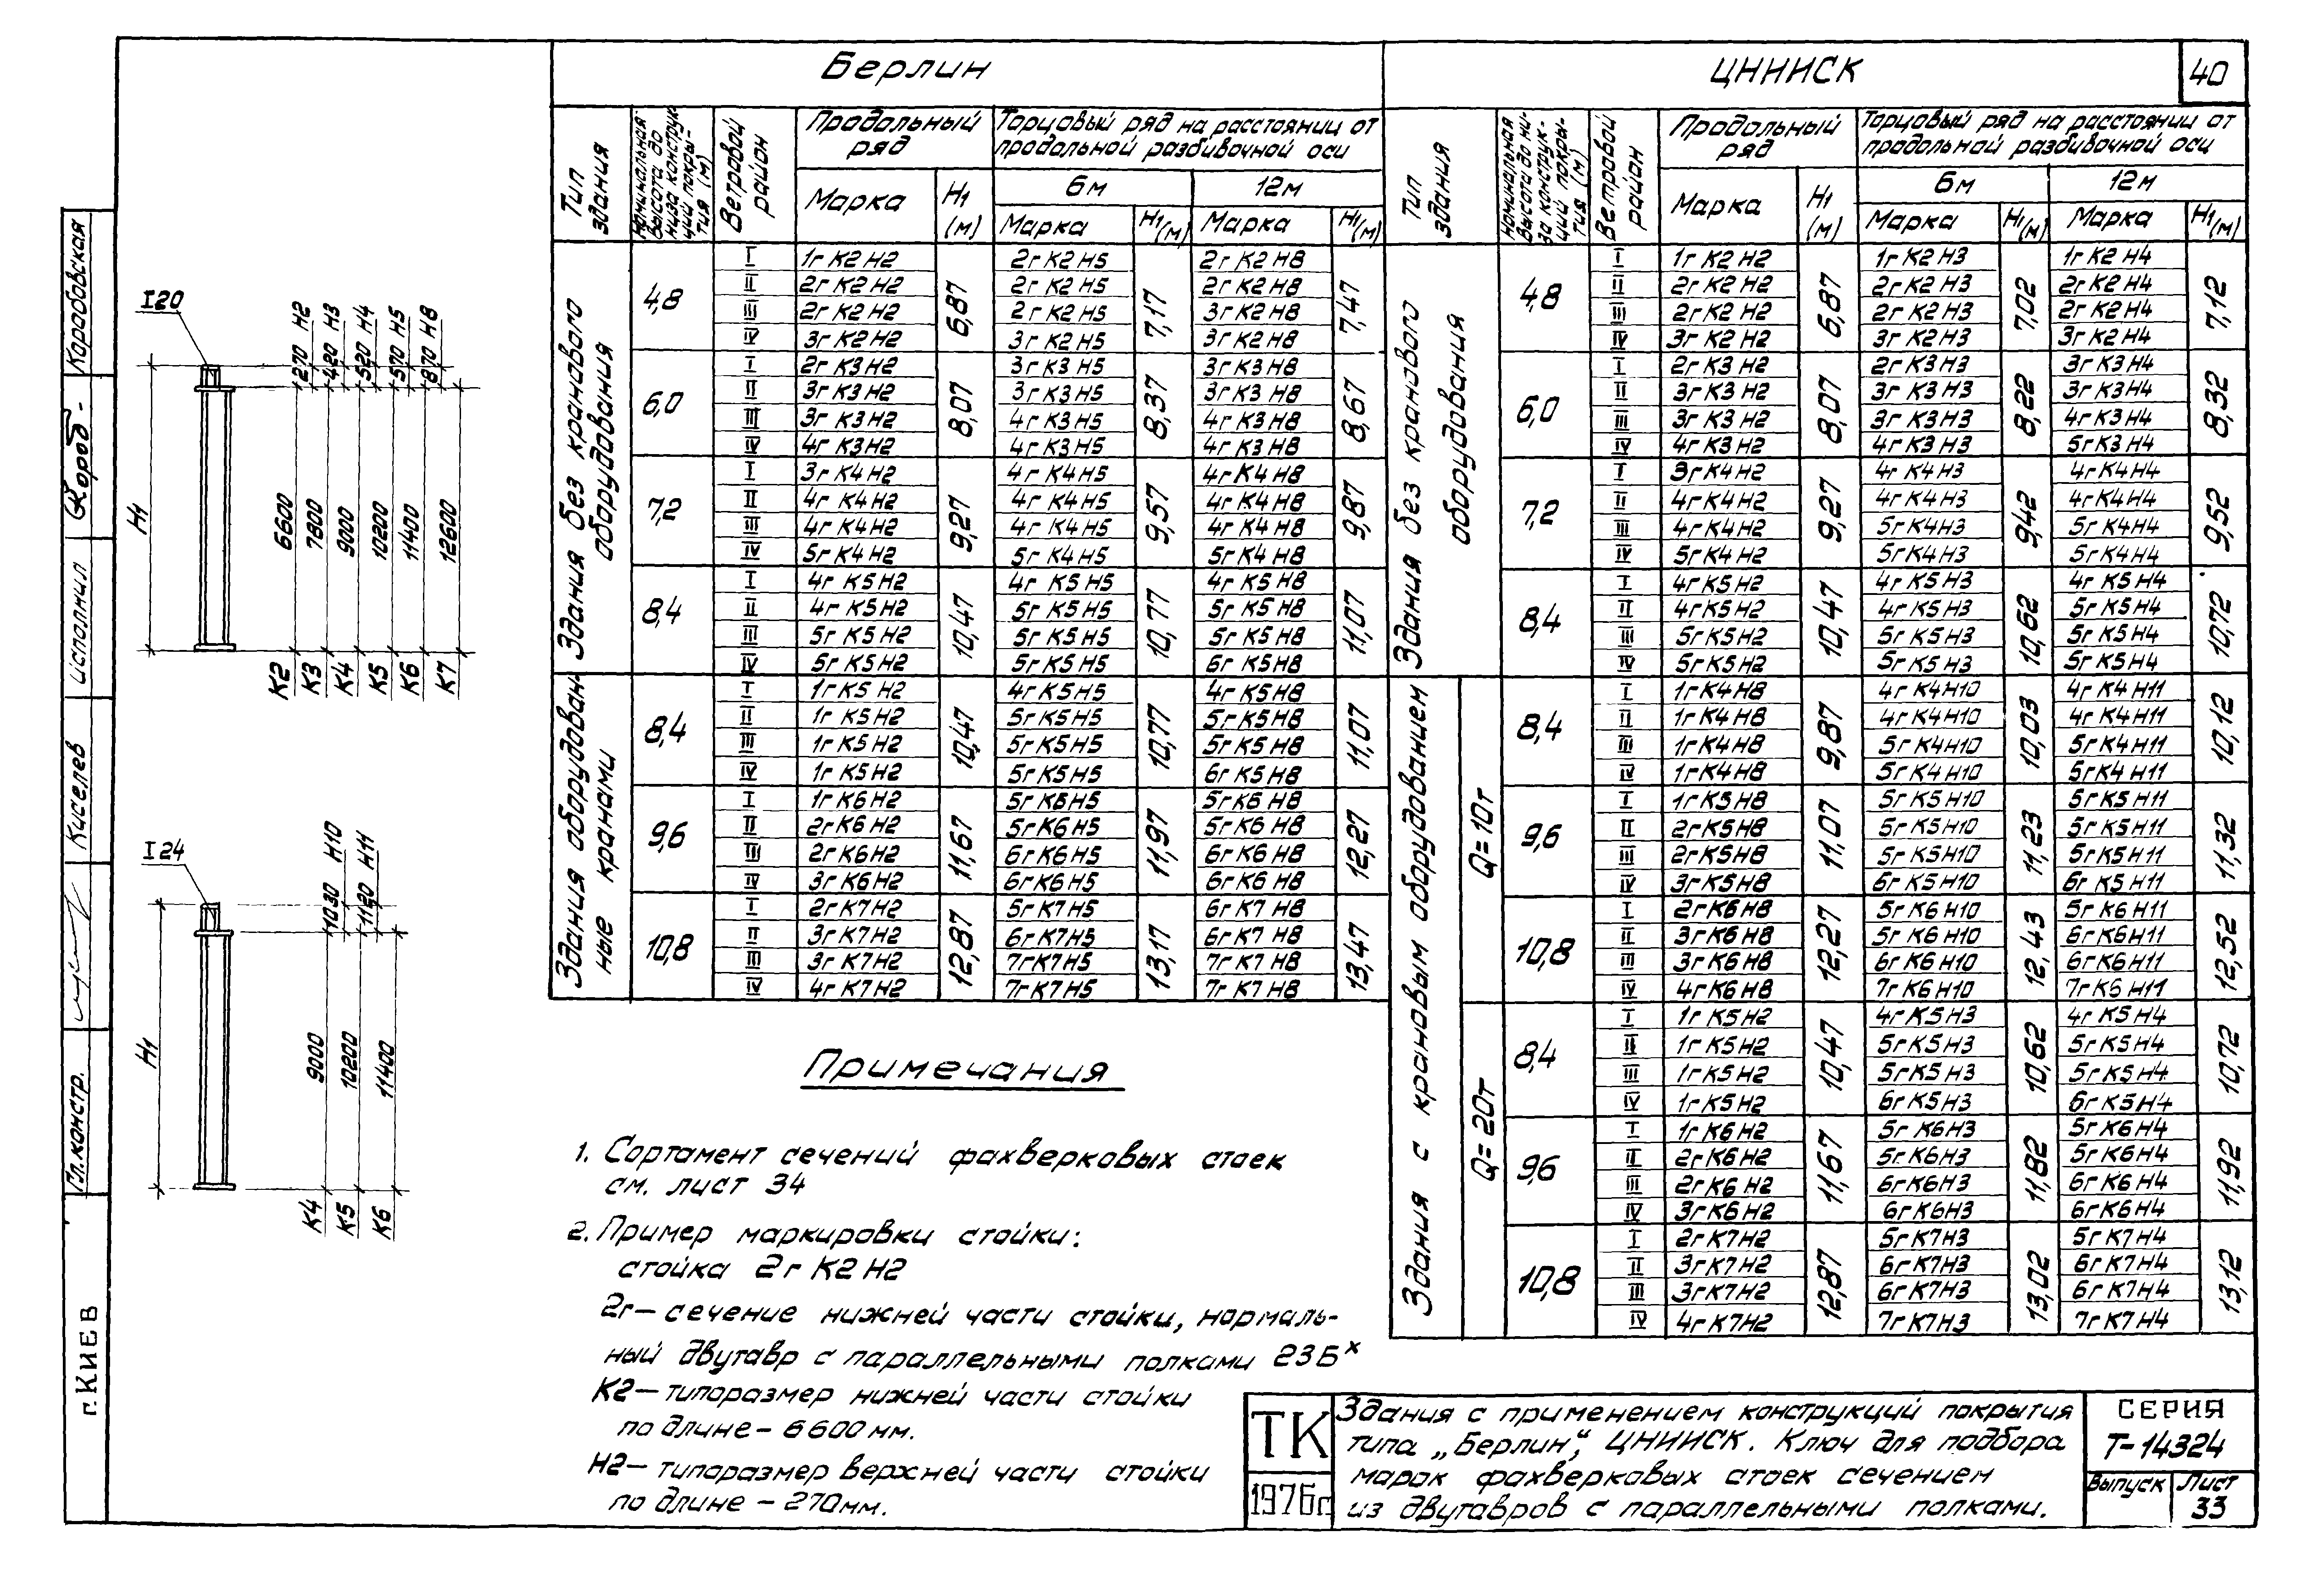 40
Берлин
Тип здания
Номинальная высота до низа конструкций покрытия (м)
Ветровой район
Продольный ряд
Торцовый ряд на расстоянии от продольной разбивочной оси
6м 12м
Марка Н1 (м) Марка Н1(м) Марка Н1(м)
Здания без кранового оборудования
4,8 6,87 7,17 7,47
I 1гК2Н2 2гК2Н5 2гК2Н8
II 2гК2Н2 2гК2Н5 2гК2Н8
III 2гК2Н2 2гК2Н5 3гК2Н8
IV 3гК2Н2 3гК2Н5 3гК2Н8
6,0 8,07 8,37 8,67
I 2гК3Н2 3гК3Н5 3гК3Н8
II 3гК3Н2 3гК3Н5 3гК3Н8
III 3гК3Н2 4гК3Н5 4гК3Н8
IV 4гК3Н2 4гК3Н5 4гК3Н8
7,2 9,27 9,57 9,87
I 3гК4Н2 4гК4Н5 4гК4Н8
II 4гК4Н2 4гК4Н5 4гК4Н8
III 4гК4Н2 4гК4Н5 4гК4Н8
IV 5гК4Н2 5гК4Н5 5гК4Н8
8,4 10,47 10,77 11,07
I 4гК5Н2 4гК5Н5 4гК5Н8
II 4гК5Н2 5гК5Н5 5гК5Н8
III 5гК5Н2 5гК5Н5 5гК5Н8
IV 5гК5Н2 5гК5Н5 6гК5Н8
Здания оборудованные кранами
8,4 10,47 10,77 11,07
I 1гК5Н2 4гК5Н5 4гК5Н8
II 1гК5Н2 5гК5Н5 5гК5Н8
III 1гК5Н2 5гК5Н5 5гК5Н8
IV 1гК5Н2 5гК5Н5 6гК5Н8
9,6 11,67 11,97 12,27
I 1гК6Н2 5гК6Н5 5гК6Н8
II 2гК6Н2 5гК6Н5 5гК6Н8
III 2гК6Н2 6гК6Н5 6гК6Н8
IV 3гК6Н2 6гК6Н5 6гК6Н8
10,8 12,87 13,17 13,47
I 2гК7Н2 5гК7Н5 6гК7Н8
II 3гК7Н2 6гК7Н5 6гК7Н8
III 3гК7Н2 7гК7Н5 7гК7Н8
IV 4гК7Н2 7гК7Н5 7гК7Н8
ЦНИИСК
Тип здания
Номинальная высота до низа конструкций покрытия (м)
Ветровой район
Продольный ряд
Торцовый ряд на расстоянии от продольной разбивочной оси
6м 12м
Марка Н1 (м) Марка Н1(м) Марка Н1(м)
Здания без кранового оборудования
4,8 6,87 7,02 7,12
I 1гК2Н2 1гК2Н3 1гК2Н4
II 2гК2Н2 2гК2Н3 2гК2Н4
III 2гК2Н2 2гК2Н3 2гК2Н4
IV 3гК2Н2 3гК2Н3 3гК2Н4
6,0 8,07 8,22 8,32
I 2гК3Н2 2гК3Н3 3гК3Н4
II 3гК3Н2 3гК3Н3 3гК3Н4
III 3гК3Н2 3гК3Н3 4гК3Н4
IV 4гК3Н2 4гК3Н3 5гК3Н4
7,2 9,27 9,42 9,52
I 3гК4Н2 4гК4Н3 4гК4Н4
II 4гК4Н2 4гК4Н3 4гК4Н4
III 4гК4Н2 5гК4Н3 5гК4Н4
IV 5гК4Н2 5гК4Н3 5гК4Н4
8,4 10,47 10,62 10,72
I 4гК5Н2 4гК5Н3 4гК5Н4
II 4гК5Н2 4гК5Н3 5гК5Н4
III 5гК5Н2 5гК5Н3 5гК5Н4
IV 5гК5Н2 5гК5Н3 5гК5Н4
Здания с крановым оборудованием
Q=10т
8,4 9,87 10,03 10,12
I 1гК4Н8 4гК4Н10 4гК4Н11
II 1гК4Н8 4гК4Н10 4гК4Н11
III 1гК4Н8 5гК4Н10 5гК4Н11
IV 1гК4Н8 5гК4Н10 5гК4Н11
9,6 11,07 11,23 11,32
I 1гК5Н8 5гК5Н10 5гК5Н11
II 2гК5Н8 5гК5Н10 5гК5Н11
III 2гК5Н8 5гК5Н10 5гК5Н11
IV 3гК5Н8 6гК5Н10 6гК5Н11
10,8 12,27 12,43 12,52
I 2гК6Н8 5гК6Н10 5гК6Н11
II 3гК6Н8 5гК6Н10 6гК6Н11
III 3гК6Н8 6гК6Н10 6гК6Н11
IV 4гК6Н8 7гК6Н10 7гК6Н11
Q=20т
8,4 10,47 10,62 10,72
I 1гК5Н2 4гК5Н3 4гК5Н4
II 1гК5Н2 5гК5Н3 5гК5Н4
III 1гК5Н2 5гК5Н3 5гК5Н4
IV 1гК5Н2 6гК5Н3 6гК5Н4
9,6 11,67 11,82 11,92
I 1гК6Н2 5гК6Н3 5гК6Н4
II 2гК6Н2 5гК6Н3 5гК6Н4
III 2гК6Н2 6гК6Н3 6гК6Н4
IV 3гК6Н2 6гК6Н3 6гК6Н4
10,8 12,87 13,02 13,12
I 2гК7Н2 5гК7Н3 5гК7Н4
II 3гК7Н2 6гК7Н3 6гК7Н4
III 3гК7Н2 6гК7Н3 6гК7Н4
IV 4гК7Н2 7гК7Н3 7гК7Н4
I20
270 Н2
420 Н3
520 Н4
570 Н5
870 Н8
Н1
6600 7800 9000 10200 11400 12600
К2 К3 К4 К5 К6 К7
I24
1030 Н10
1120 Н11
Н1
9000 10200 11400
К4 К5 К6
Примечания
1. Сортамент сечений фахверковых стоек
см. лист 34
2. Пример маркировки стойки:
стойка 2гК2Н2
2г— сечение нижней части стойки, нормаль-
ный двутавр с параллельными полками 23Бх
К2— типоразмер нижней части стойки
по длине – 6600мм.
Н2— типоразмер верхней части стойки
по длине – 270мм.
Коробовская
Короб -
Исполнил
Киселев
Гл.констр.
г. КИЕВ
ТК
1976г
Здания с применением конструкций покрытия
типа „Берлин“, ЦНИИСК. Ключ для подбора
марок фахверковых стоек сечением
из двутавров с параллельными полками.
СЕРИЯ
Т-14324
Выпуск Лист
33